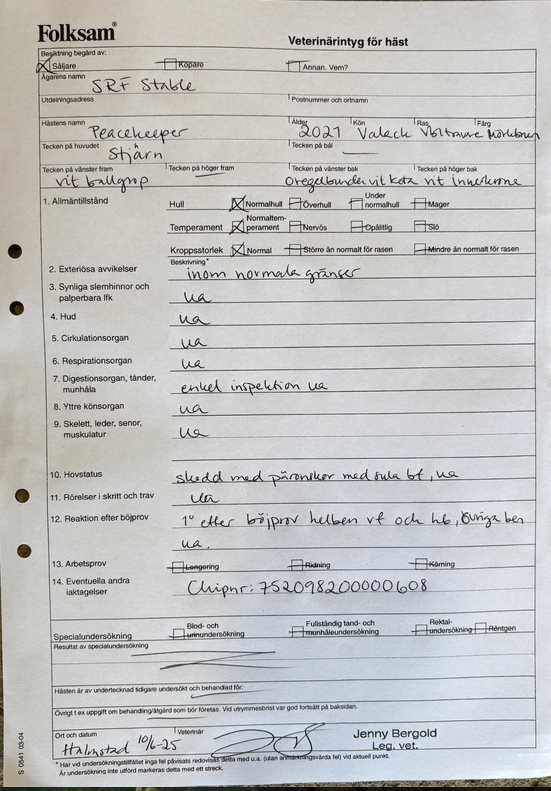 Folksam®
Veterinärintyg för häst
Besiktning begärd av:
Säljare Köpare Annan. Vem?
Ägarens namn
SRF Stable
Utdelningsadress Postnummer och ortnamn
Hästens namn Ålder Kön Ras Färg
Peacekeeper 2021 Valack Mörkbrun
Tecken på huvudet Tecken på bål
Stjärn
Tecken på vänster fram Tecken på höger fram Tecken på vänster bak Tecken på höger bak
vit ballgrop Oregelbunden vit kota vit innerkrona
1. Allmäntillstånd Hull Normalhull Överhull Under normalhull Mager
Temperament Normaltemperament Nervös Opålitlig Slö
Kroppsstorlek Normal Större än normalt för rasen Mindre än normalt för rasen
Beskrivning*
2. Exteriösa avvikelser inom normala gränser
3. Synliga slemhinnor och
palperbara lfk ua
4. Hud ua
5. Cirkulationsorgan ua
6. Respirationsorgan ua
7. Digestionsorgan, tänder,
munhåla enkel inspektion ua
8. Yttre könsorgan ua
9. Skelett, leder, senor,
muskulatur ua
10. Hovstatus skodd med päronskor med sula bf, ua
11. Rörelser i skritt och trav ua
12. Reaktion efter böjprov 1° efter böjprov helben vf och hb, övriga ben
ua.
13. Arbetsprov Longering Ridning Körning
14. Eventuella andra
iaktagelser Chipnr: 752098200000608
Specialundersökning Blod- och urinundersökning Fullständig tand- och munhåleundersökning Rektalundersökning Röntgen
Resultat av specialundersökning
Hästen är av undertecknad tidigare undersökt och behandlad för:
Övrigt t ex uppgift om behandling/åtgärd som bör företas. Vid utrymmesbrist var god fortsätt på baksidan.
Ort och datum Veterinär
Halmstad 10/6-25
Jenny Bergold
Leg. vet.
* Har vid undersökningstillfället inga fel påvisats redovisas detta med u.a. (utan anmärkningsvärda fel) vid aktuell punkt.
Är undersökning inte utförd markeras detta med ett streck.
S 0541 03-04